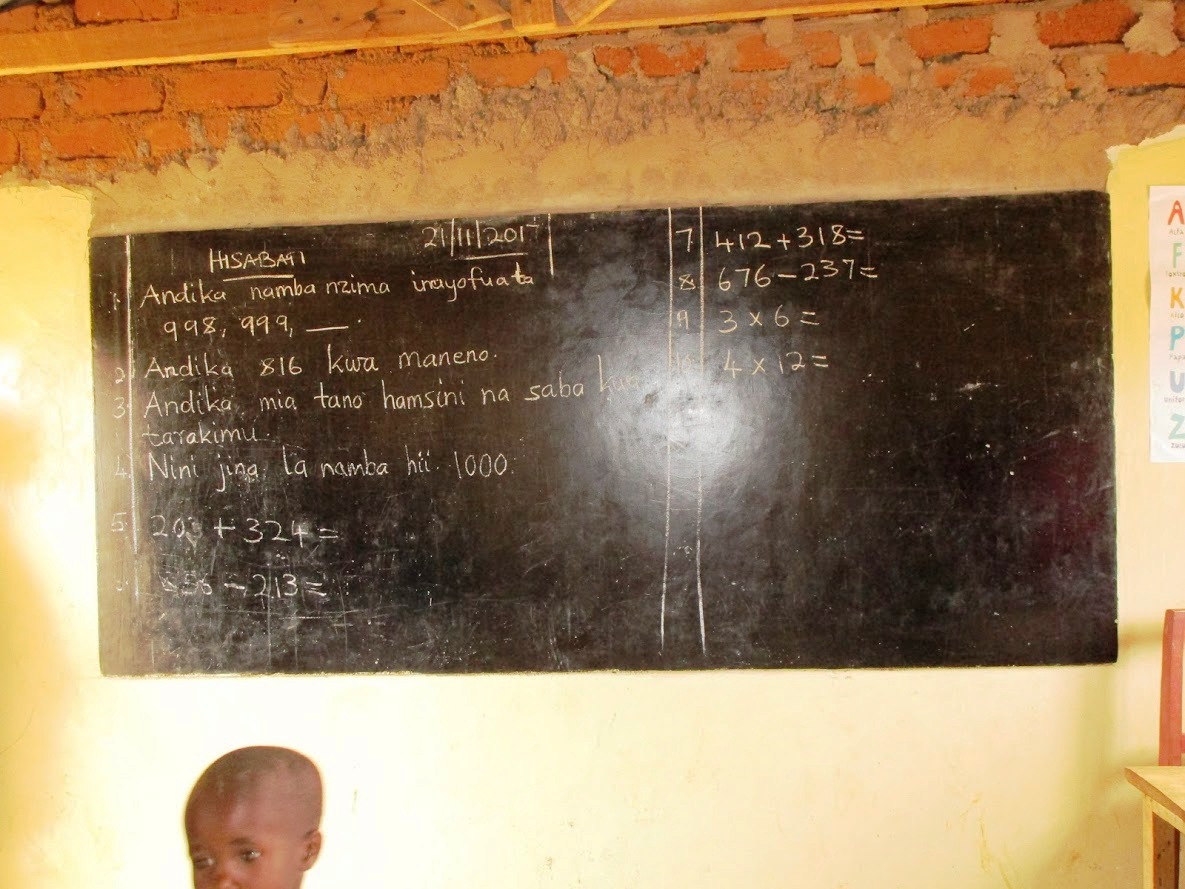 HISABATI 21/11/2015
1. Andika namba nzima inayofuata
998, 999, __.
2. Andika 816 kwa maneno.
3. Andika mia tano hamsini na saba kwa
tarakimu.
4. Nini jina la namba hii. 1000
5. + 324 =
- 213 =
7 412 + 318 =
8 676 - 237 =
9 3 x 6 =
10 4 x 12 =
A
F
K
P
U
Z